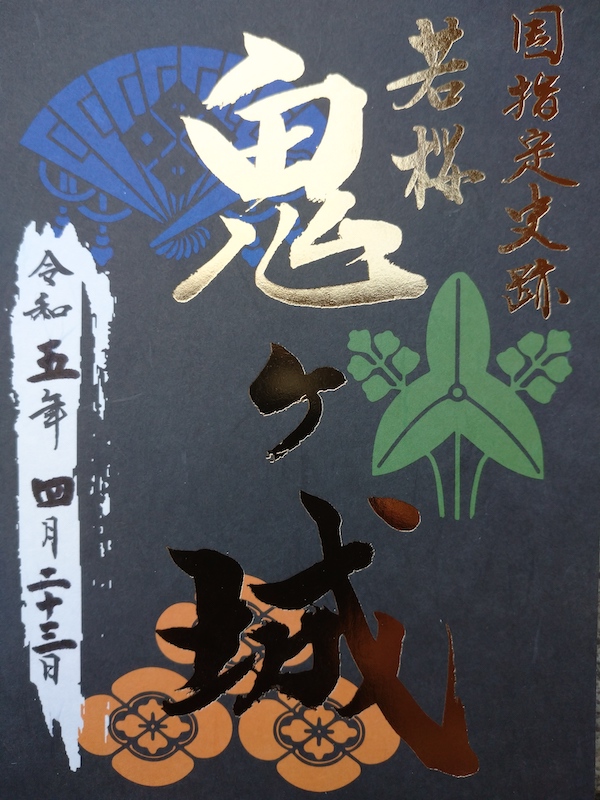 国指定史跡
若桜
鬼ヶ城
令和五年四月二十三日